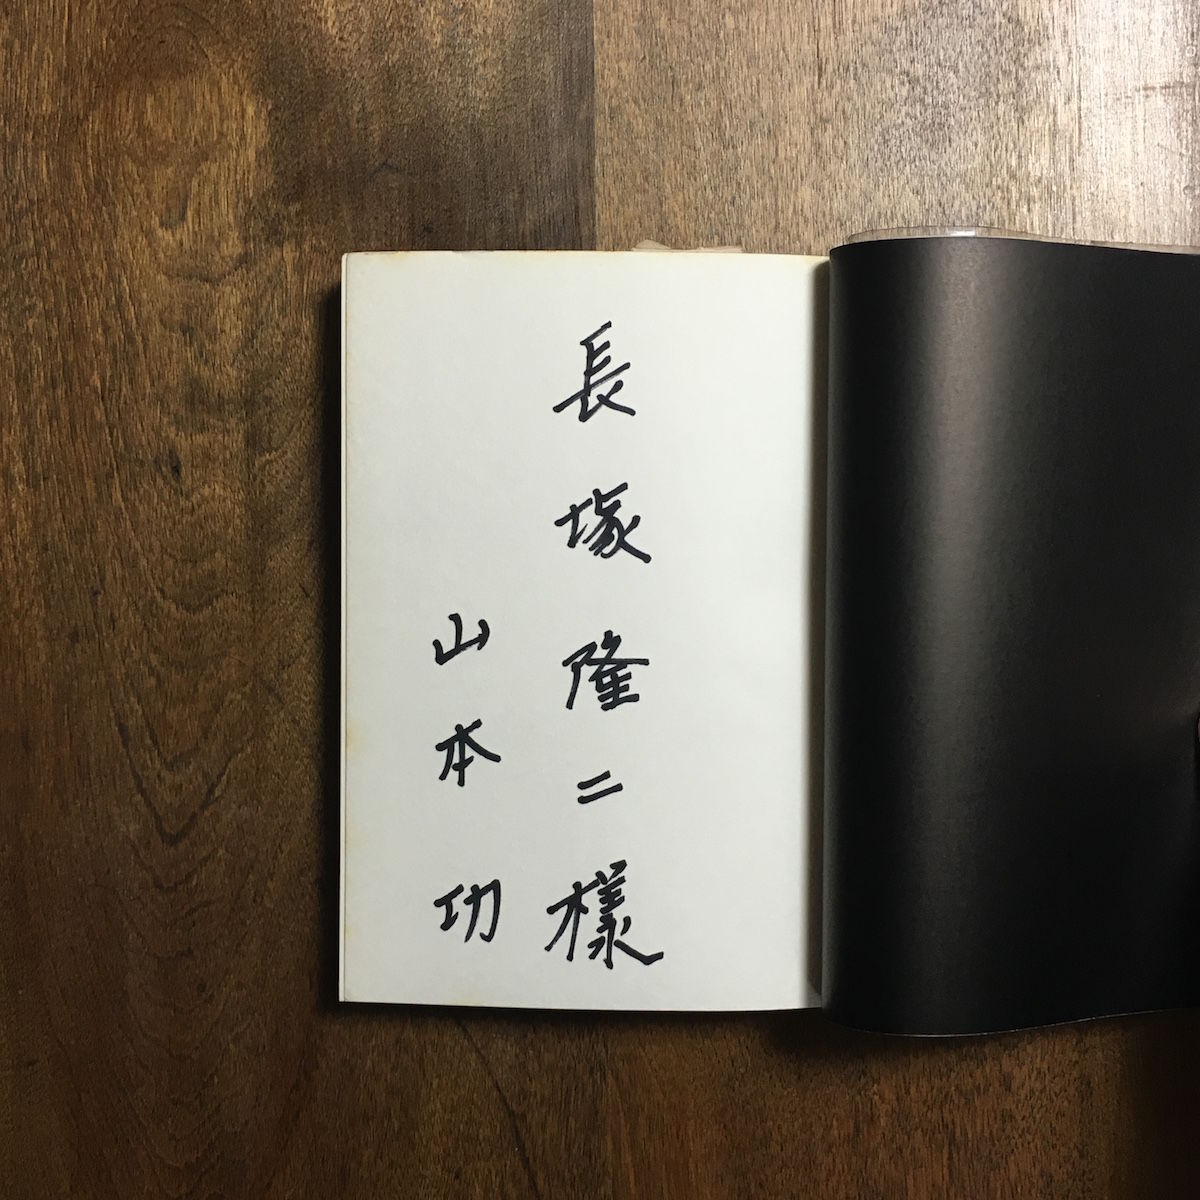 長塚隆二様
山本功